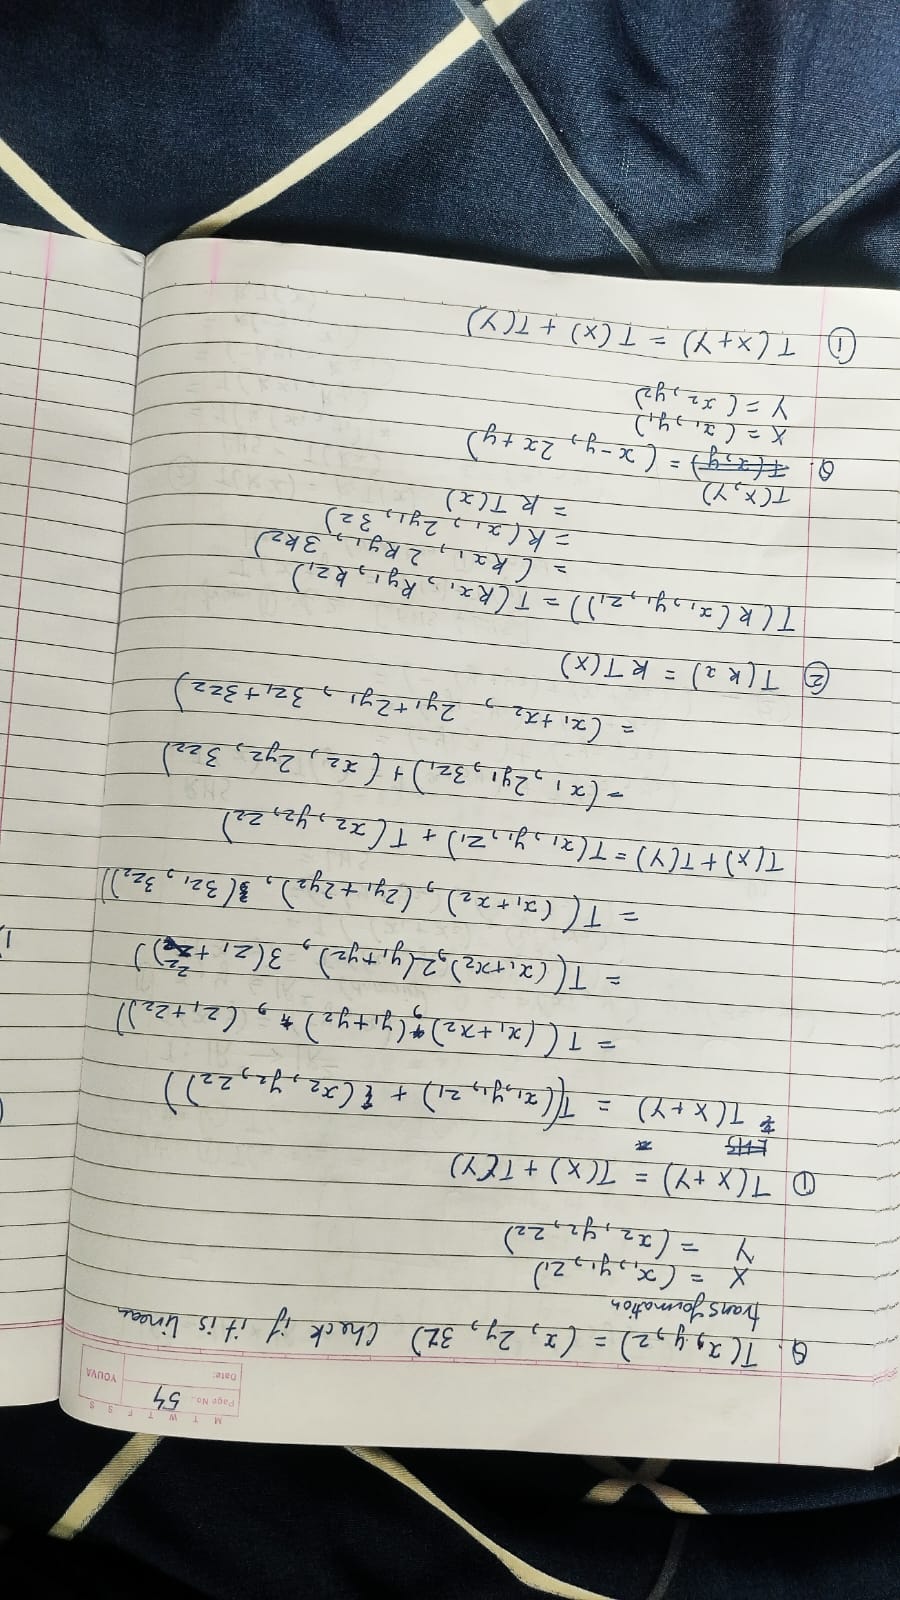 M T W T F S S
Page No.: 54
Date:
YOUVA
Q. T(x, y, z) = (x, 2y, 3z) Check if it is linear
transformation
X = (x₁, y₁, z₁)
Y = (x₂, y₂, z₂)
① T(X+Y) = T(X) + T(Y)
T(X+Y) = T((x₁, y₁, z₁) + (x₂, y₂, z₂))
= T((x₁+x₂), (y₁+y₂), (z₁+z₂))
= T((x₁+x₂), 2(y₁+y₂), 3(z₁+z₂))
= T((x₁+x₂), (2y₁+2y₂), (3z₁, 3z₂))
T(X)+T(Y) = T(x₁, y₁, z₁) + T(x₂, y₂, z₂)
= (x₁, 2y₁, 3z₁) + (x₂, 2y₂, 3z₂)
= (x₁+x₂, 2y₁+2y₁, 3z₁+3z₂)
② T(kx) = kT(X)
T(k(x₁, y₁, z₁)) = T(kx₁, ky₁, kz₁)
= (kx₁, 2ky₁, 3kz)
= k(x₁, 2y₁, 3z)
= kT(x)
T(X, Y)
Q. T(x, y) = (x-y, 2x+y)
X = (x₁, y₁)
Y = (x₂, y₂)
① T(X+Y) = T(X) + T(Y)